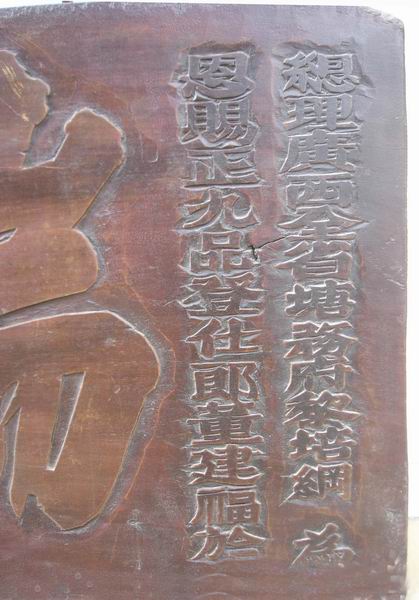 總理廣西全省塘務府黎培綱 為
恩賜正九品登仕郎董建福於